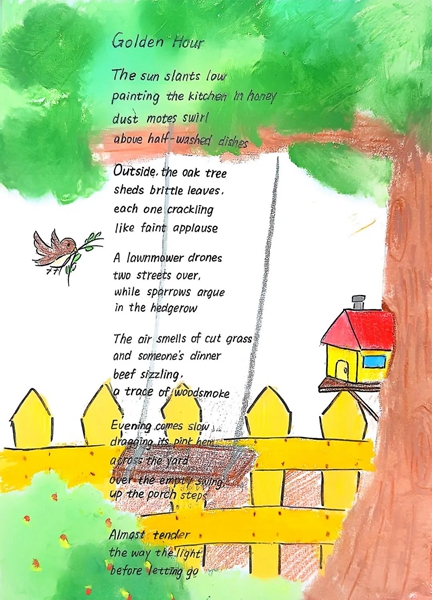 Golden Hour
The sun slants low
painting the kitchen in honey
dust motes swirl
above half-washed dishes
Outside, the oak tree
sheds brittle leaves,
each one crackling
like faint applause
A lawnmower drones
two streets over,
while sparrows argue
in the hedgerow
The air smells of cut grass
and someone's dinner
beef sizzling,
a trace of woodsmoke
Evening comes slow
dragging its pink hem
across the yard
over the empty swing,
up the porch steps
Almost tender
the way the light
before letting go